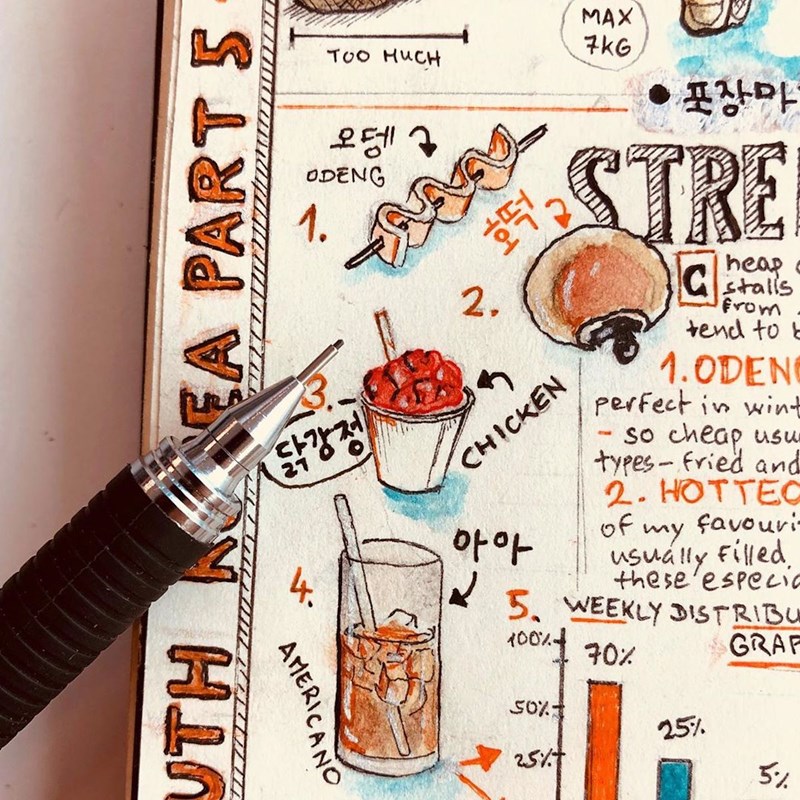 UTH KOREA PART 5
TOO MUCH
MAX
7KG
• 포장마
오뎅
ODENG
1.
호떡
2.
STRE
Cheap
stalls
from
tend to b
3.
닭강정
CHICKEN
1. ODENG
perfect in wint
- so cheap usu
types - fried and
2. HOTTEO
of my favouri
usually filled
these especia
4.
아아
AMERICANO
5. WEEKLY DISTRIBU
GRAP
100%
70%
50%
25%
25%
5%